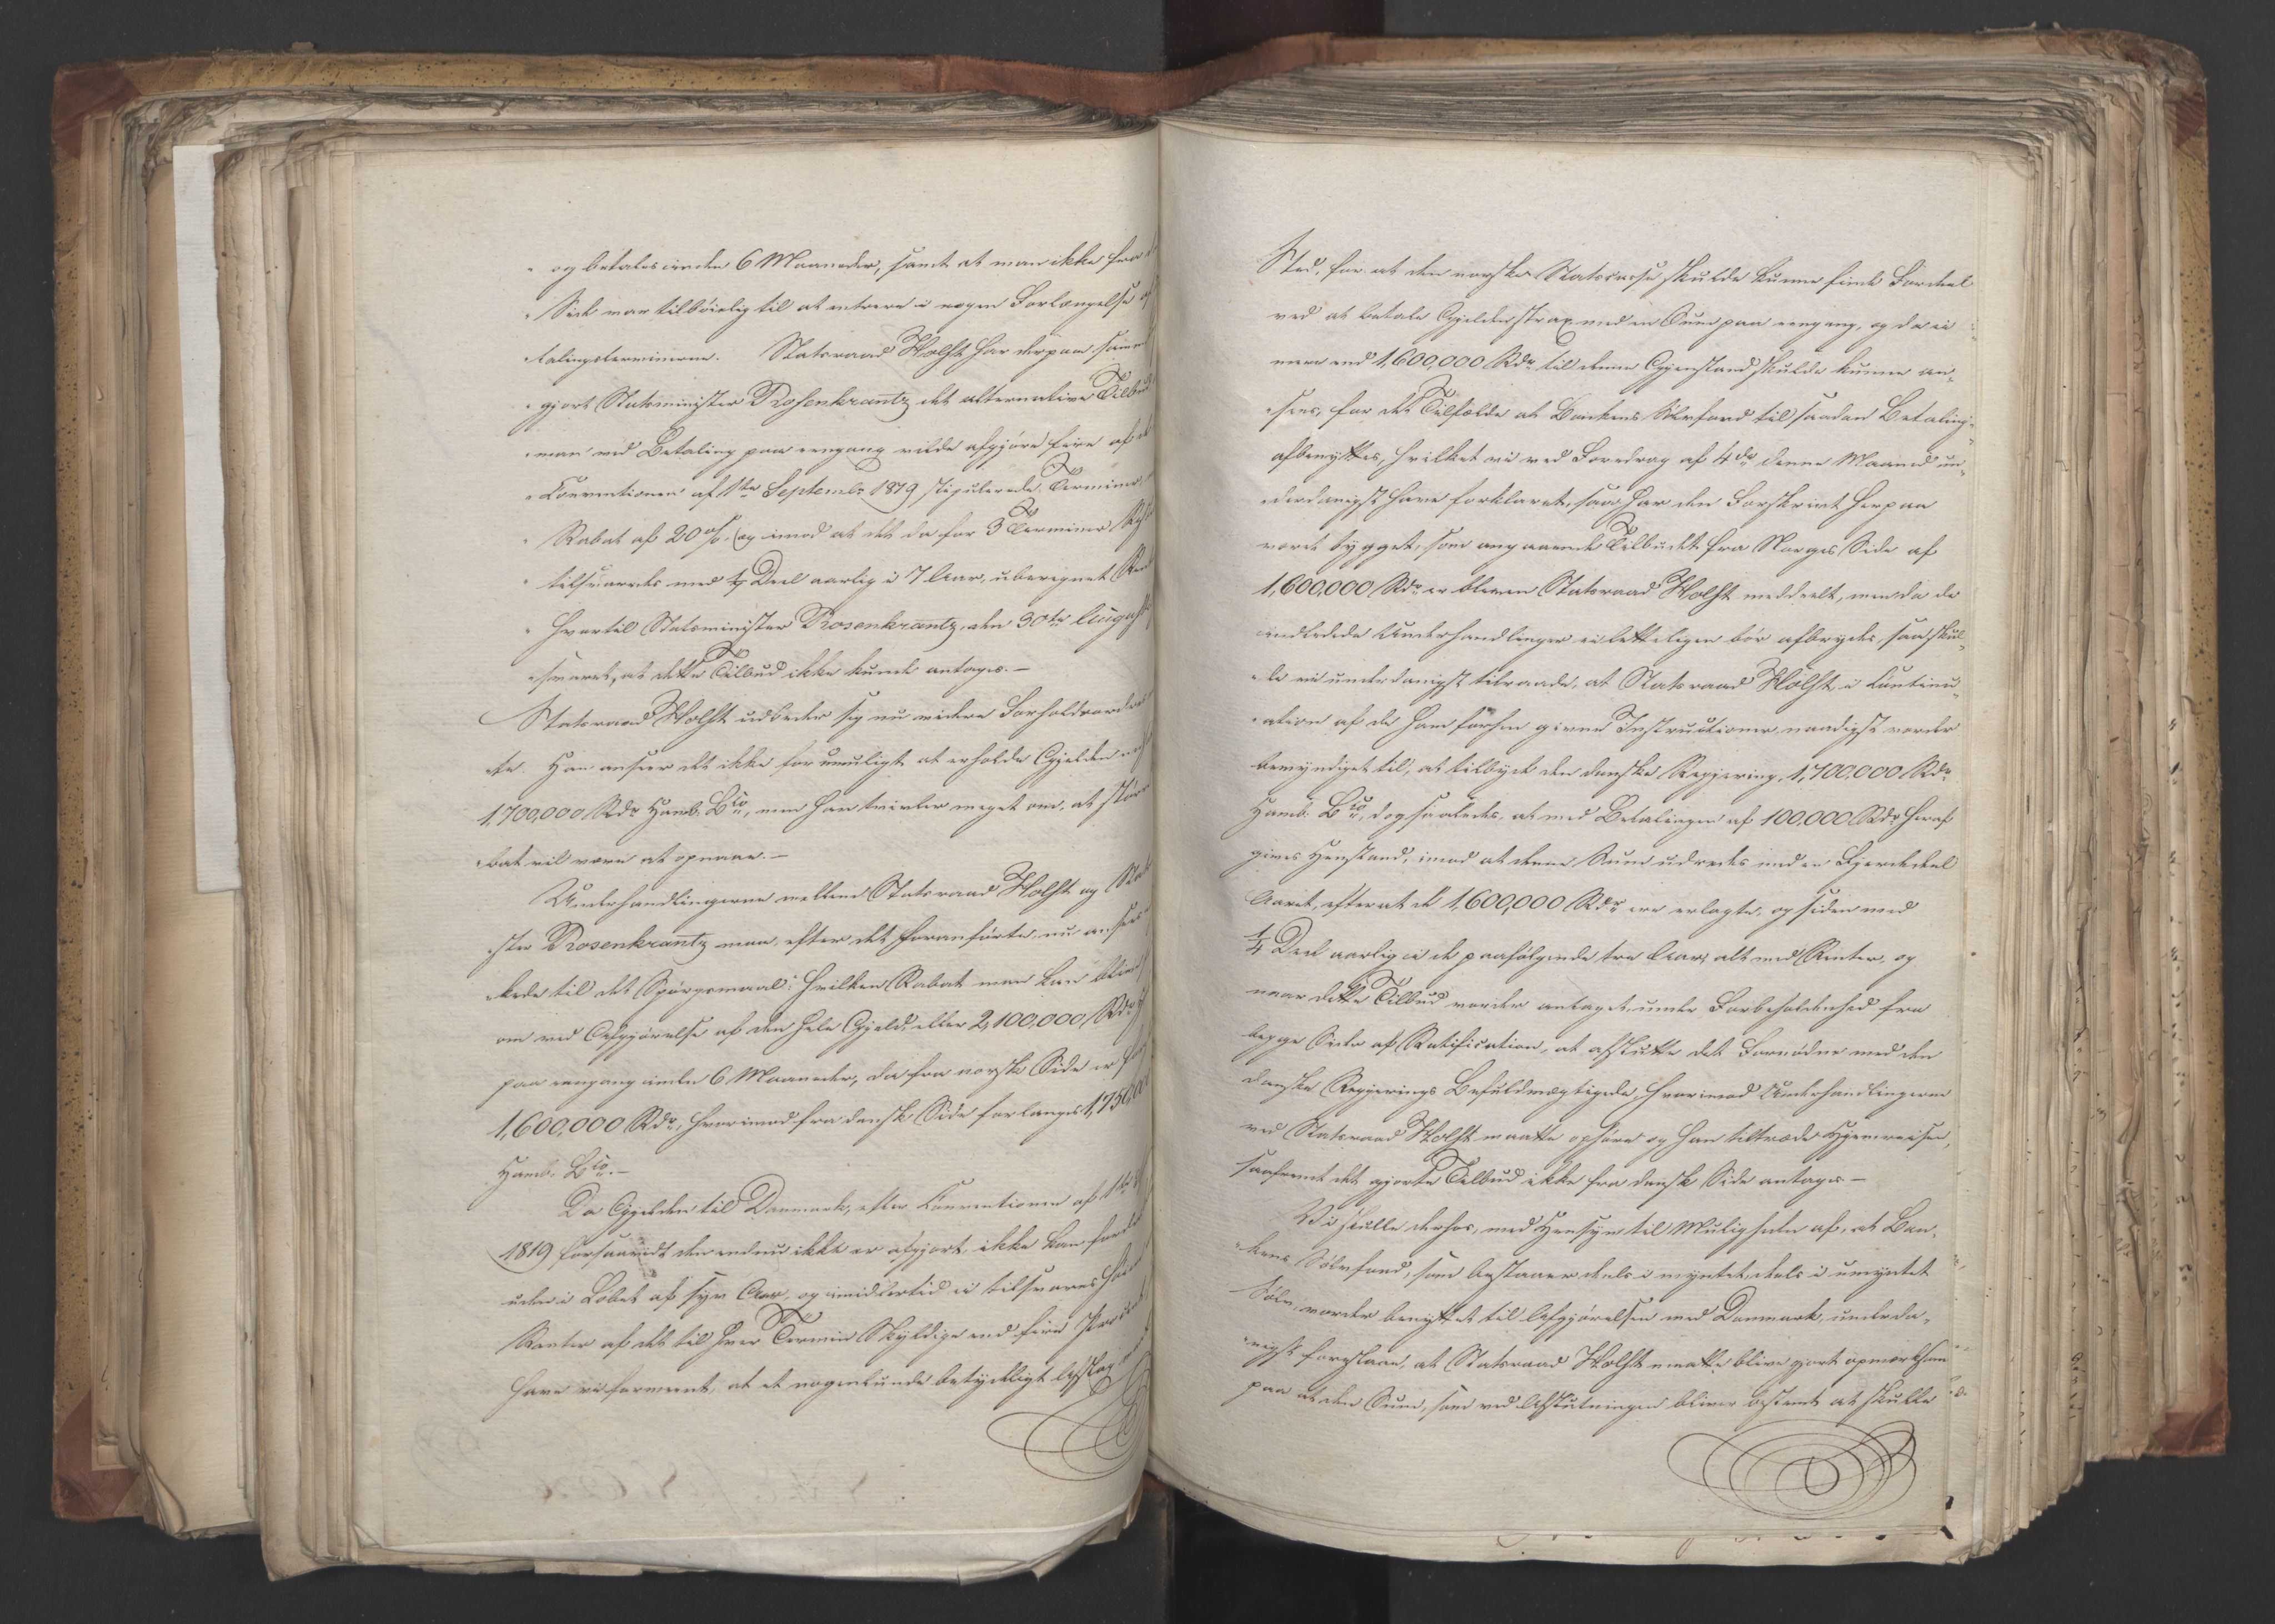 og betales inden 6 Maaneder, samt at man ikke fra
Side var tilbøielig til at entrere i nogen Forlængelse af
talingsterminerne. Statsraad Holst har derpaa
gjort Statsminister Rosenkrantz det alternative Tilbud
man ved Betaling paa eengang vilde afgjøre fire af
Conventionen af 1ste Septembr 1819 stipulerede Terminer
Rabat af 20 %, og imod at det da for 3 Terminer
tilsvaredes med 1/7 Deel aarlig i 7 Aar, uberegnet
Hvortil Statsminister Rosenkrantz, den 30te August
svaret, at dette Tilbud ikke kunde antages.—
Statsraad Holst udbeder sig nu videre Forholdsordre
Han anseer det ikke for umuligt at erholde Gjelden
1,700,000 Rdr Hamb. Bco, men han tvivler meget om, at større
bat vil være at opnaae.—
Underhandlingerne mellem Statsraad Holst og
ster Rosenkrantz maa, efter det foranførte, nu ansees
kede til det Spørgsmaal: hvilken Rabat man kan blive
om ved Afgjørelse af den hele Gjeld, eller 2,100,000 Rdr
paa eengang inden 6 Maaneder, da fra norsk Side er
1,600,000 Rdr, hvorimod fra dansk Side forlanges 1,750,00
Hamb. Bco.—
Da Gjelden til Danmark, efter Conventionen af 1ste
1819 forsaavidt den endnu ikke er afgjort, ikke kan
uden i Løbet af syv Aar, og imidlertid ei tilsvares
Renter af det til hver Termin Skyldige end fire Procent
have vi formeent, at et nogenlunde betydeligt Afslag
Sted, for at den norske Statscasse skulde kunne finde Fordeel
ved at betale Gjelden strax med en Sum paa eengang, og da ei
mere end 1,600,000 Rdr til denne Gjenstand skulde kunne an-
sees, for det Tilfælde at Bankens Sølvfond til saadan Betaling
afbenyttes, hvilket vi ved Foredrag af 4de denne Maaned un-
derdanigst have forklaret, saa har den Forskrivt herpaa
været bygget, som angaaende Tilbudet fra Norges Side af
1,600,000 Rdr er bleven Statsraad Holst meddeelt, men da de
indledede Underhandlinger ei letteligen bør afbrydes, saa skul-
de vi underdanigst tilraade, at Statsraad Holst i Continu-
ation af de ham førhen givne Instructioner, naadigst vorder
bemyndiget til, at tilbyde den danske Regjering, 1,700,000 Rdr
Hamb. Bco, dog saaledes, at med Betalingen af 100,000 Rdr heraf
gives Henstand, imod at denne Sum udredes med en Fjerdedeel
Aaret, efter at de 1,600,000 Rdr ere erlagte, og siden med
1/4 Deel aarlig i de paafølgende tre Aar, alt med Renter, og
naar dette Tilbud vorder antaget, under Forbeholdenhed fra
begge Sider af Ratification, at afslutte det Fornødne med den
danske Regjerings Befuldmægtigede, hvorimod Underhandlingerne
ved Statsraad Holst maatte ophøre og han tiltræde Hjemreisen,
saafremt det gjorte Tilbud ikke fra dansk Side antages—
Vi skulle derhos, med Hensyn til Muligheden af, at Ban-
kens Sølvfond, som bestaaer deels i myntet, deels i umyntet
Sølv, vorder benyttet til Afgjørelsen med Danmark, underda-
nigst foreslaae, at Statsraad Holst maatte blive gjort opmærksom
paa at den Sum, som ved Afslutningen bliver bestemt at skulle